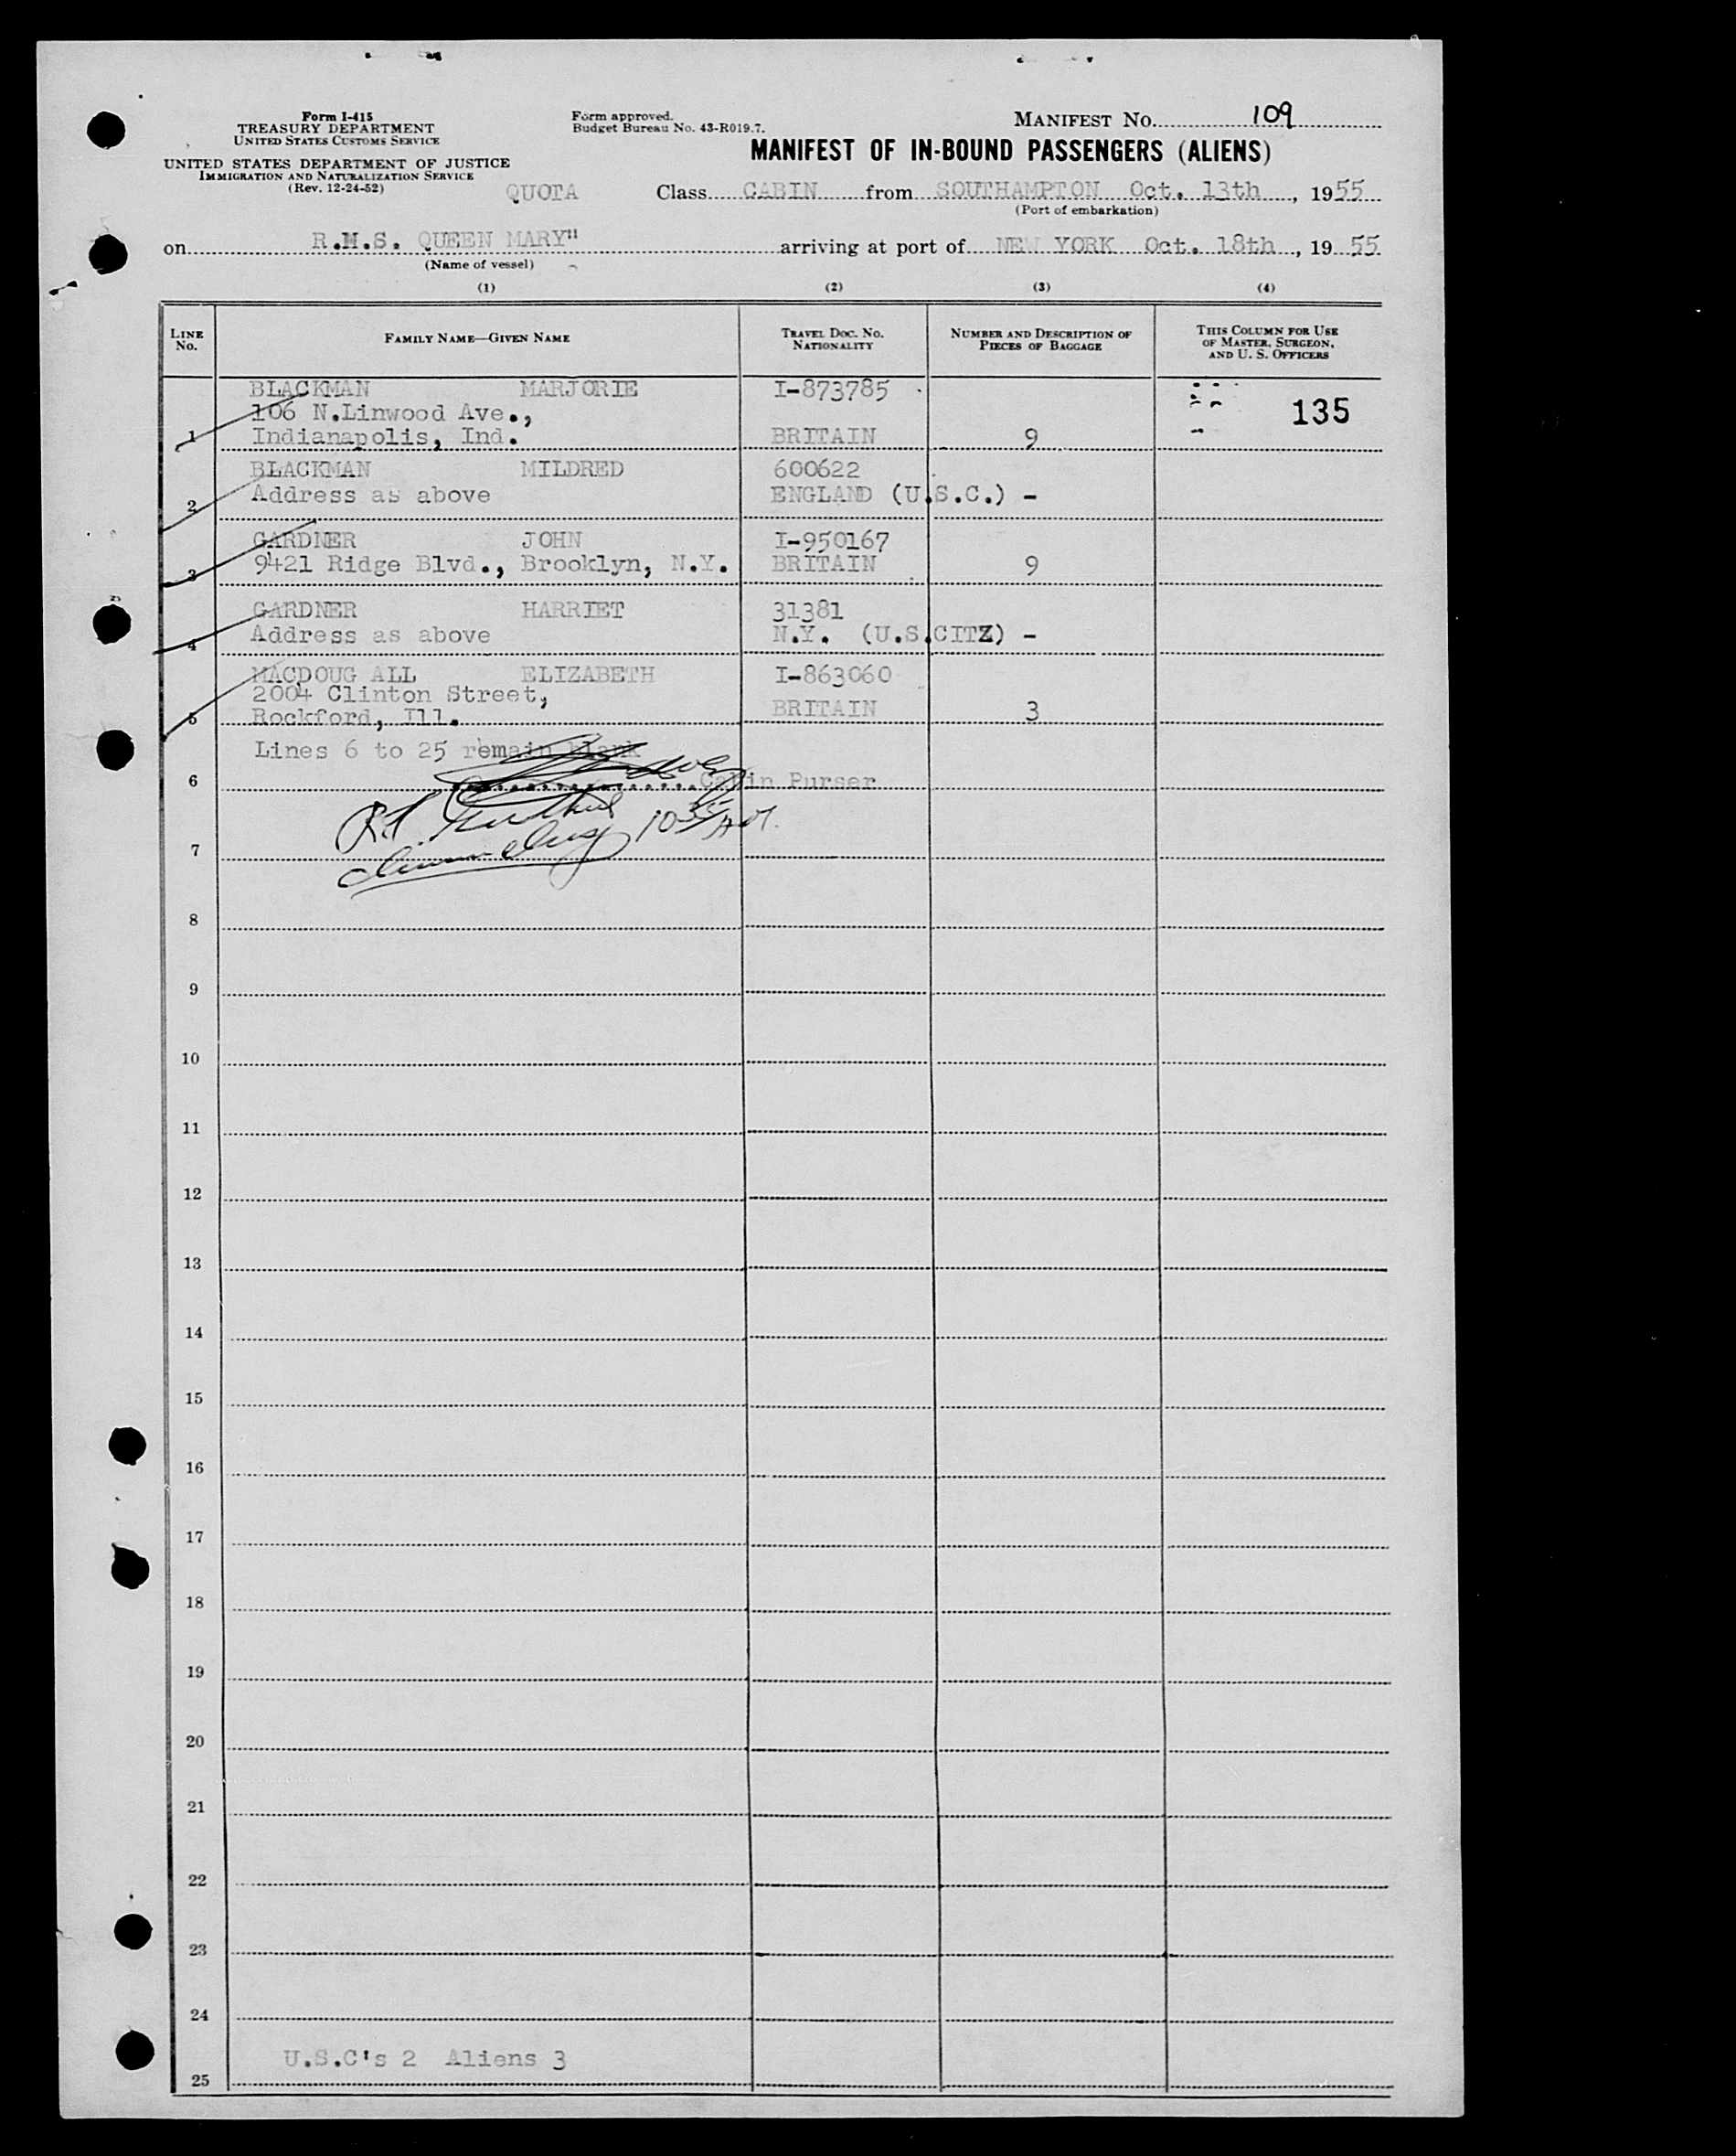 Form I-415
TREASURY DEPARTMENT
UNITED STATES CUSTOMS SERVICE
UNITED STATES DEPARTMENT OF JUSTICE
IMMIGRATION AND NATURALIZATION SERVICE
(Rev. 12-24-52)
Form approved.
Budget Bureau No. 43-R019.7.
MANIFEST NO. 109
MANIFEST OF IN-BOUND PASSENGERS (ALIENS)
QUOTA Class CABIN from SOUTHAMPTON Oct. 13th, 1955
(Port of embarkation)
on R.M.S. QUEEN MARY" arriving at port of NEW YORK Oct. 18th, 1955
(Name of vessel)
(1) (2) (3) (4)
LINE NO. FAMILY NAME—GIVEN NAME TRAVEL DOC. NO. NATIONALITY NUMBER AND DESCRIPTION OF PIECES OF BAGGAGE THIS COLUMN FOR USE OF MASTER, SURGEON, AND U. S. OFFICERS
BLACKMAN MARJORIE I-873785
106 N.Linwood Ave., 135
1 Indianapolis, Ind. BRITAIN 9
BLACKMAN MILDRED 600622
2 Address as above ENGLAND (U.S.C.) -
GARDNER JOHN I-950167
3 9421 Ridge Blvd., Brooklyn, N.Y. BRITAIN 9
GARDNER HARRIET 31381
4 Address as above N.Y. (U.S.CITZ) -
MACDOUG ALL ELIZABETH I-863060
2004 Clinton Street,
5 Rockford, Ill. BRITAIN 3
Lines 6 to 25 remain blank
6 Cabin Purser
10 35 AM.
7
8
9
10
11
12
13
14
15
16
17
18
19
20
21
22
23
24
U.S.C's 2 Aliens 3
25